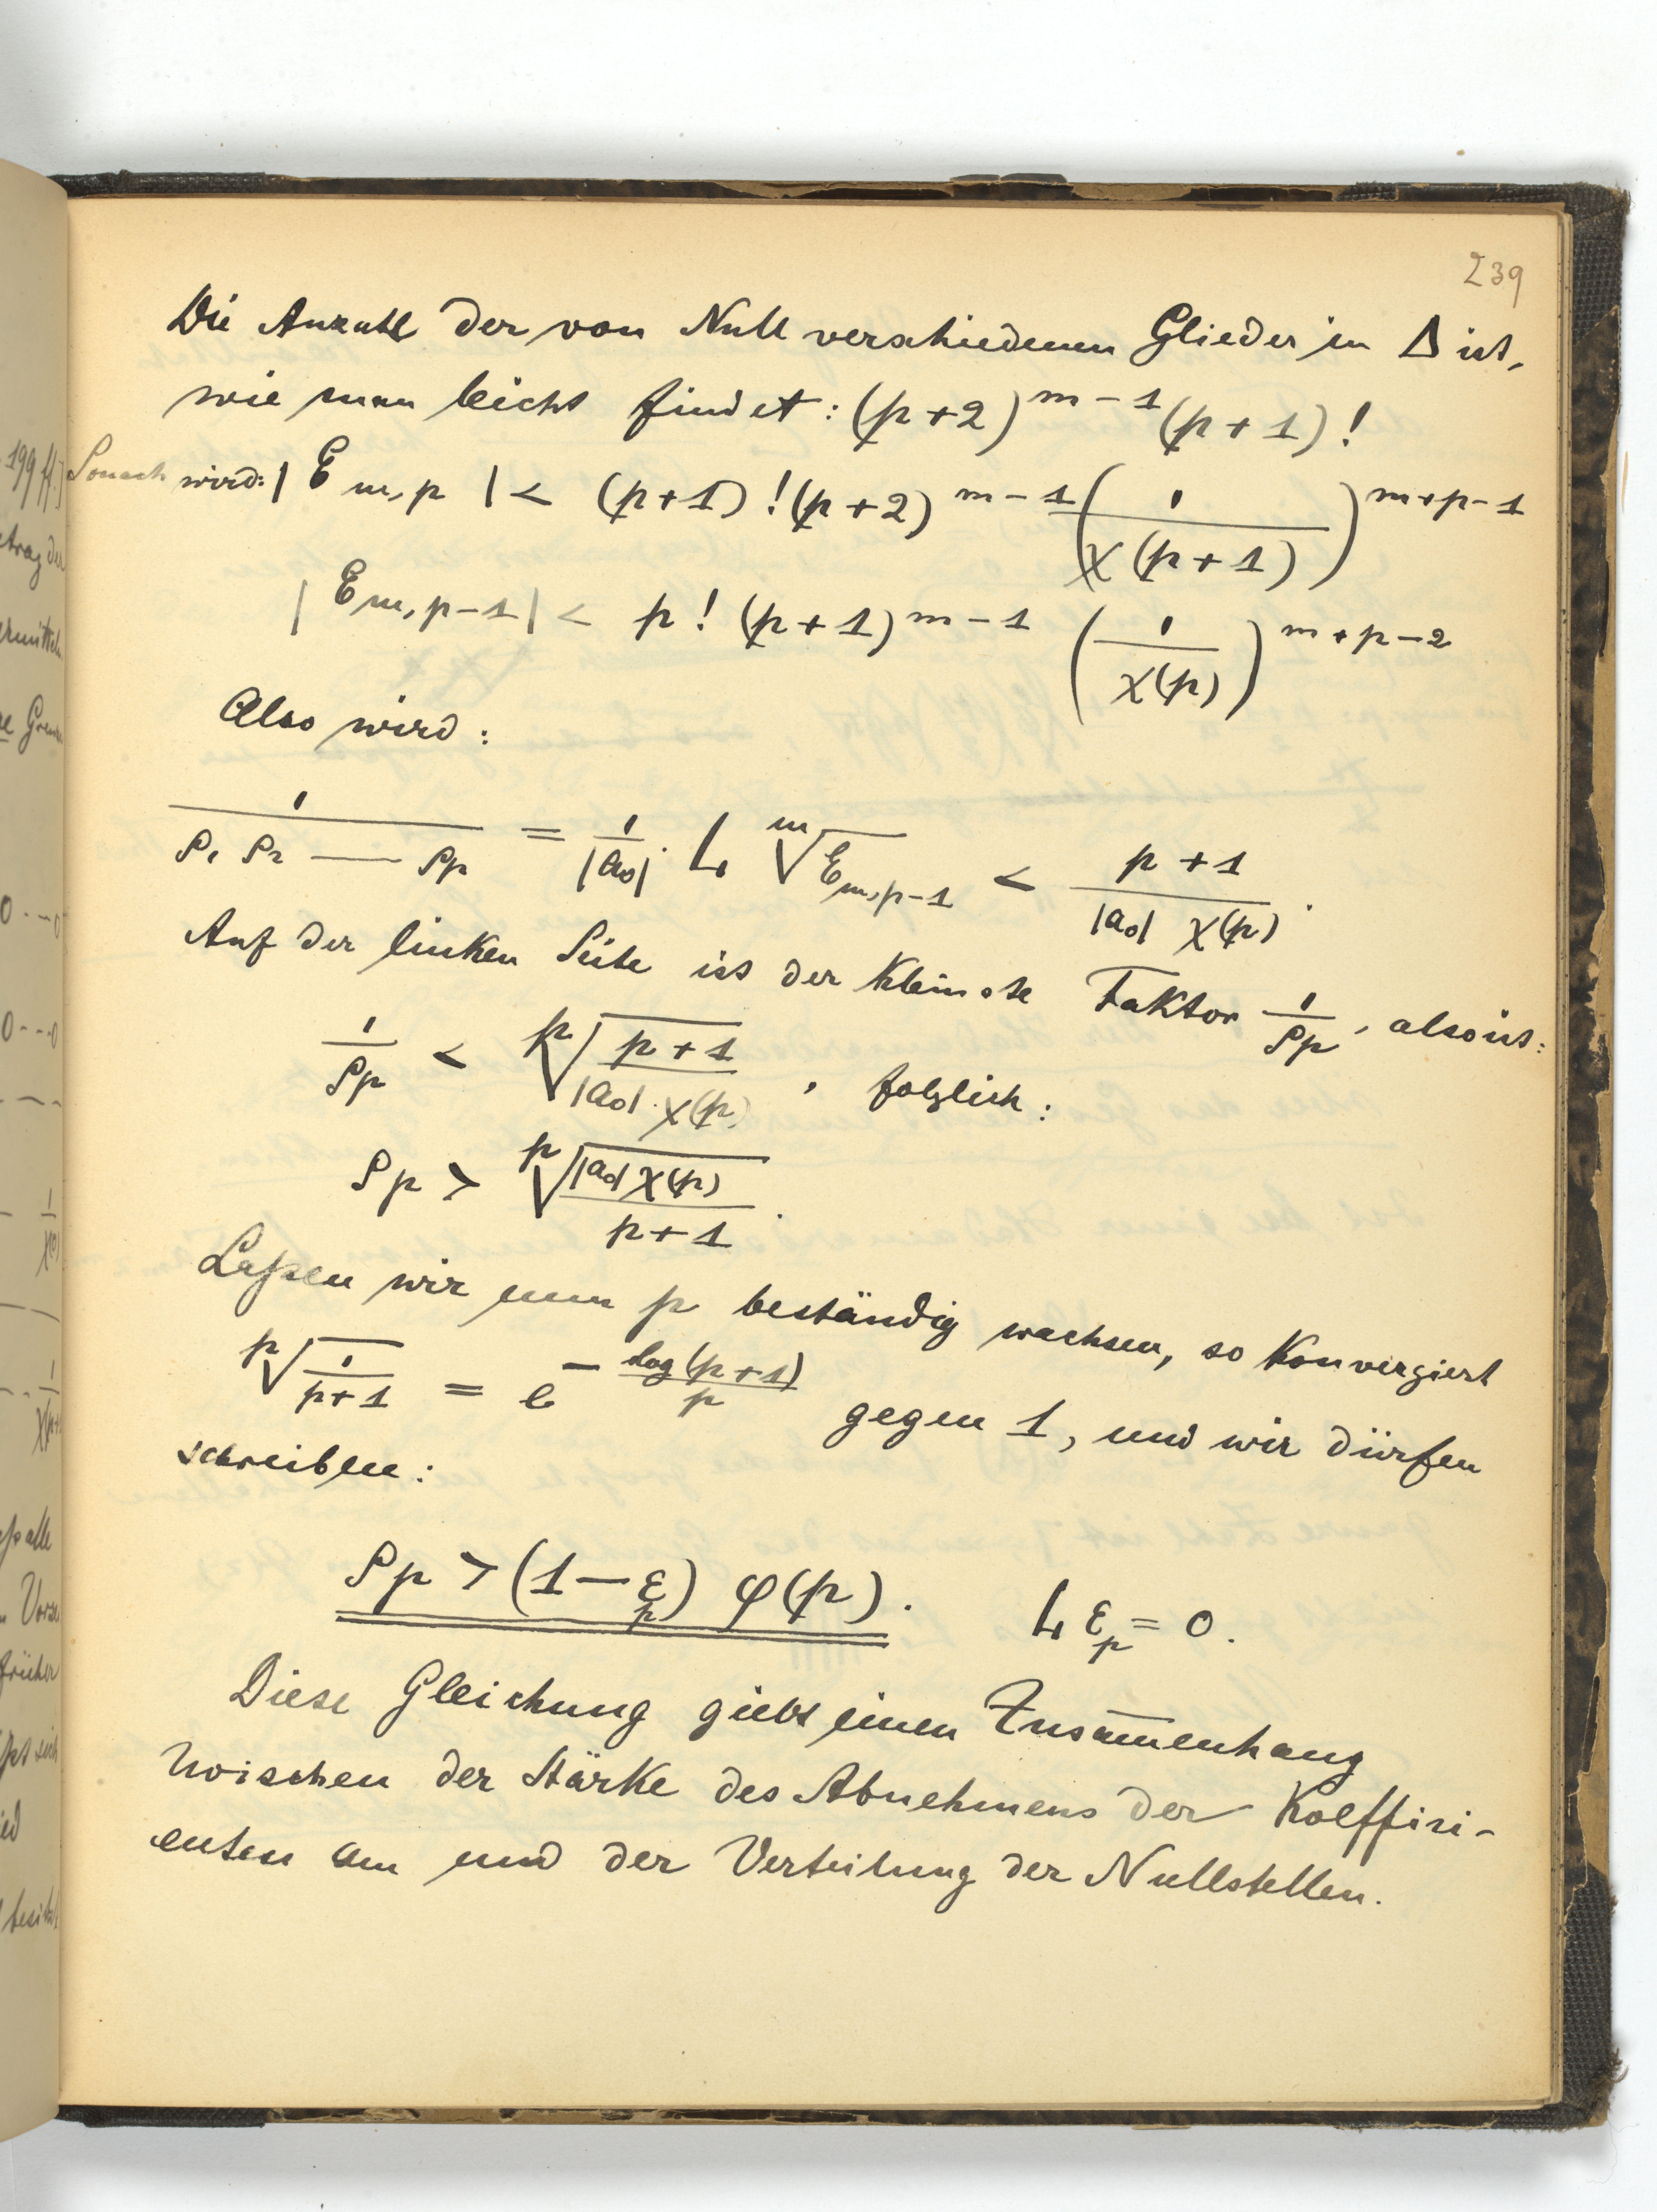 239
Die Anzahl der von Null verschiedenen Glieder in Δ ist,
wie man leicht findet: (p+2)^{m-1} (p+1)!
Sonach wird: |E_{m,p}| < (p+1)! (p+2)^{m-1} (1/χ(p+1))^{m+p-1}
|E_{m,p-1}| < p! (p+1)^{m-1} (1/χ(p))^{m+p-2}
Also wird:
1/(ρ₁ ρ₂ — ρ_p) = 1/|a₀| · L \sqrt[m]{E_{m,p-1}} < (p+1)/(|a₀| χ(p)).
Auf der linken Seite ist der kleinste Faktor 1/ρ_p, also ist:
1/ρ_p < \sqrt[p]{(p+1)/(|a₀| · χ(p))}, folglich:
ρ_p > \sqrt[p]{|a₀| χ(p)/(p+1)}.
Laßen wir nun p beständig wachsen, so konvergiert
\sqrt[p]{1/(p+1)} = e^{-log(p+1)/p} gegen 1, und wir dürfen
schreiben:
ρ_p > (1-ε_p) φ(p). L ε_p = 0.
Diese Gleichung giebt einen Zusam̅enhang
zwischen der Stärke des Abnehmens der Koeffizi-
enten a_m und der Verteilung der Nullstellen.
199 ff.]